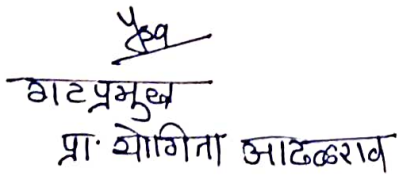 गटप्रमुख
प्रा. योगिता आढळराव